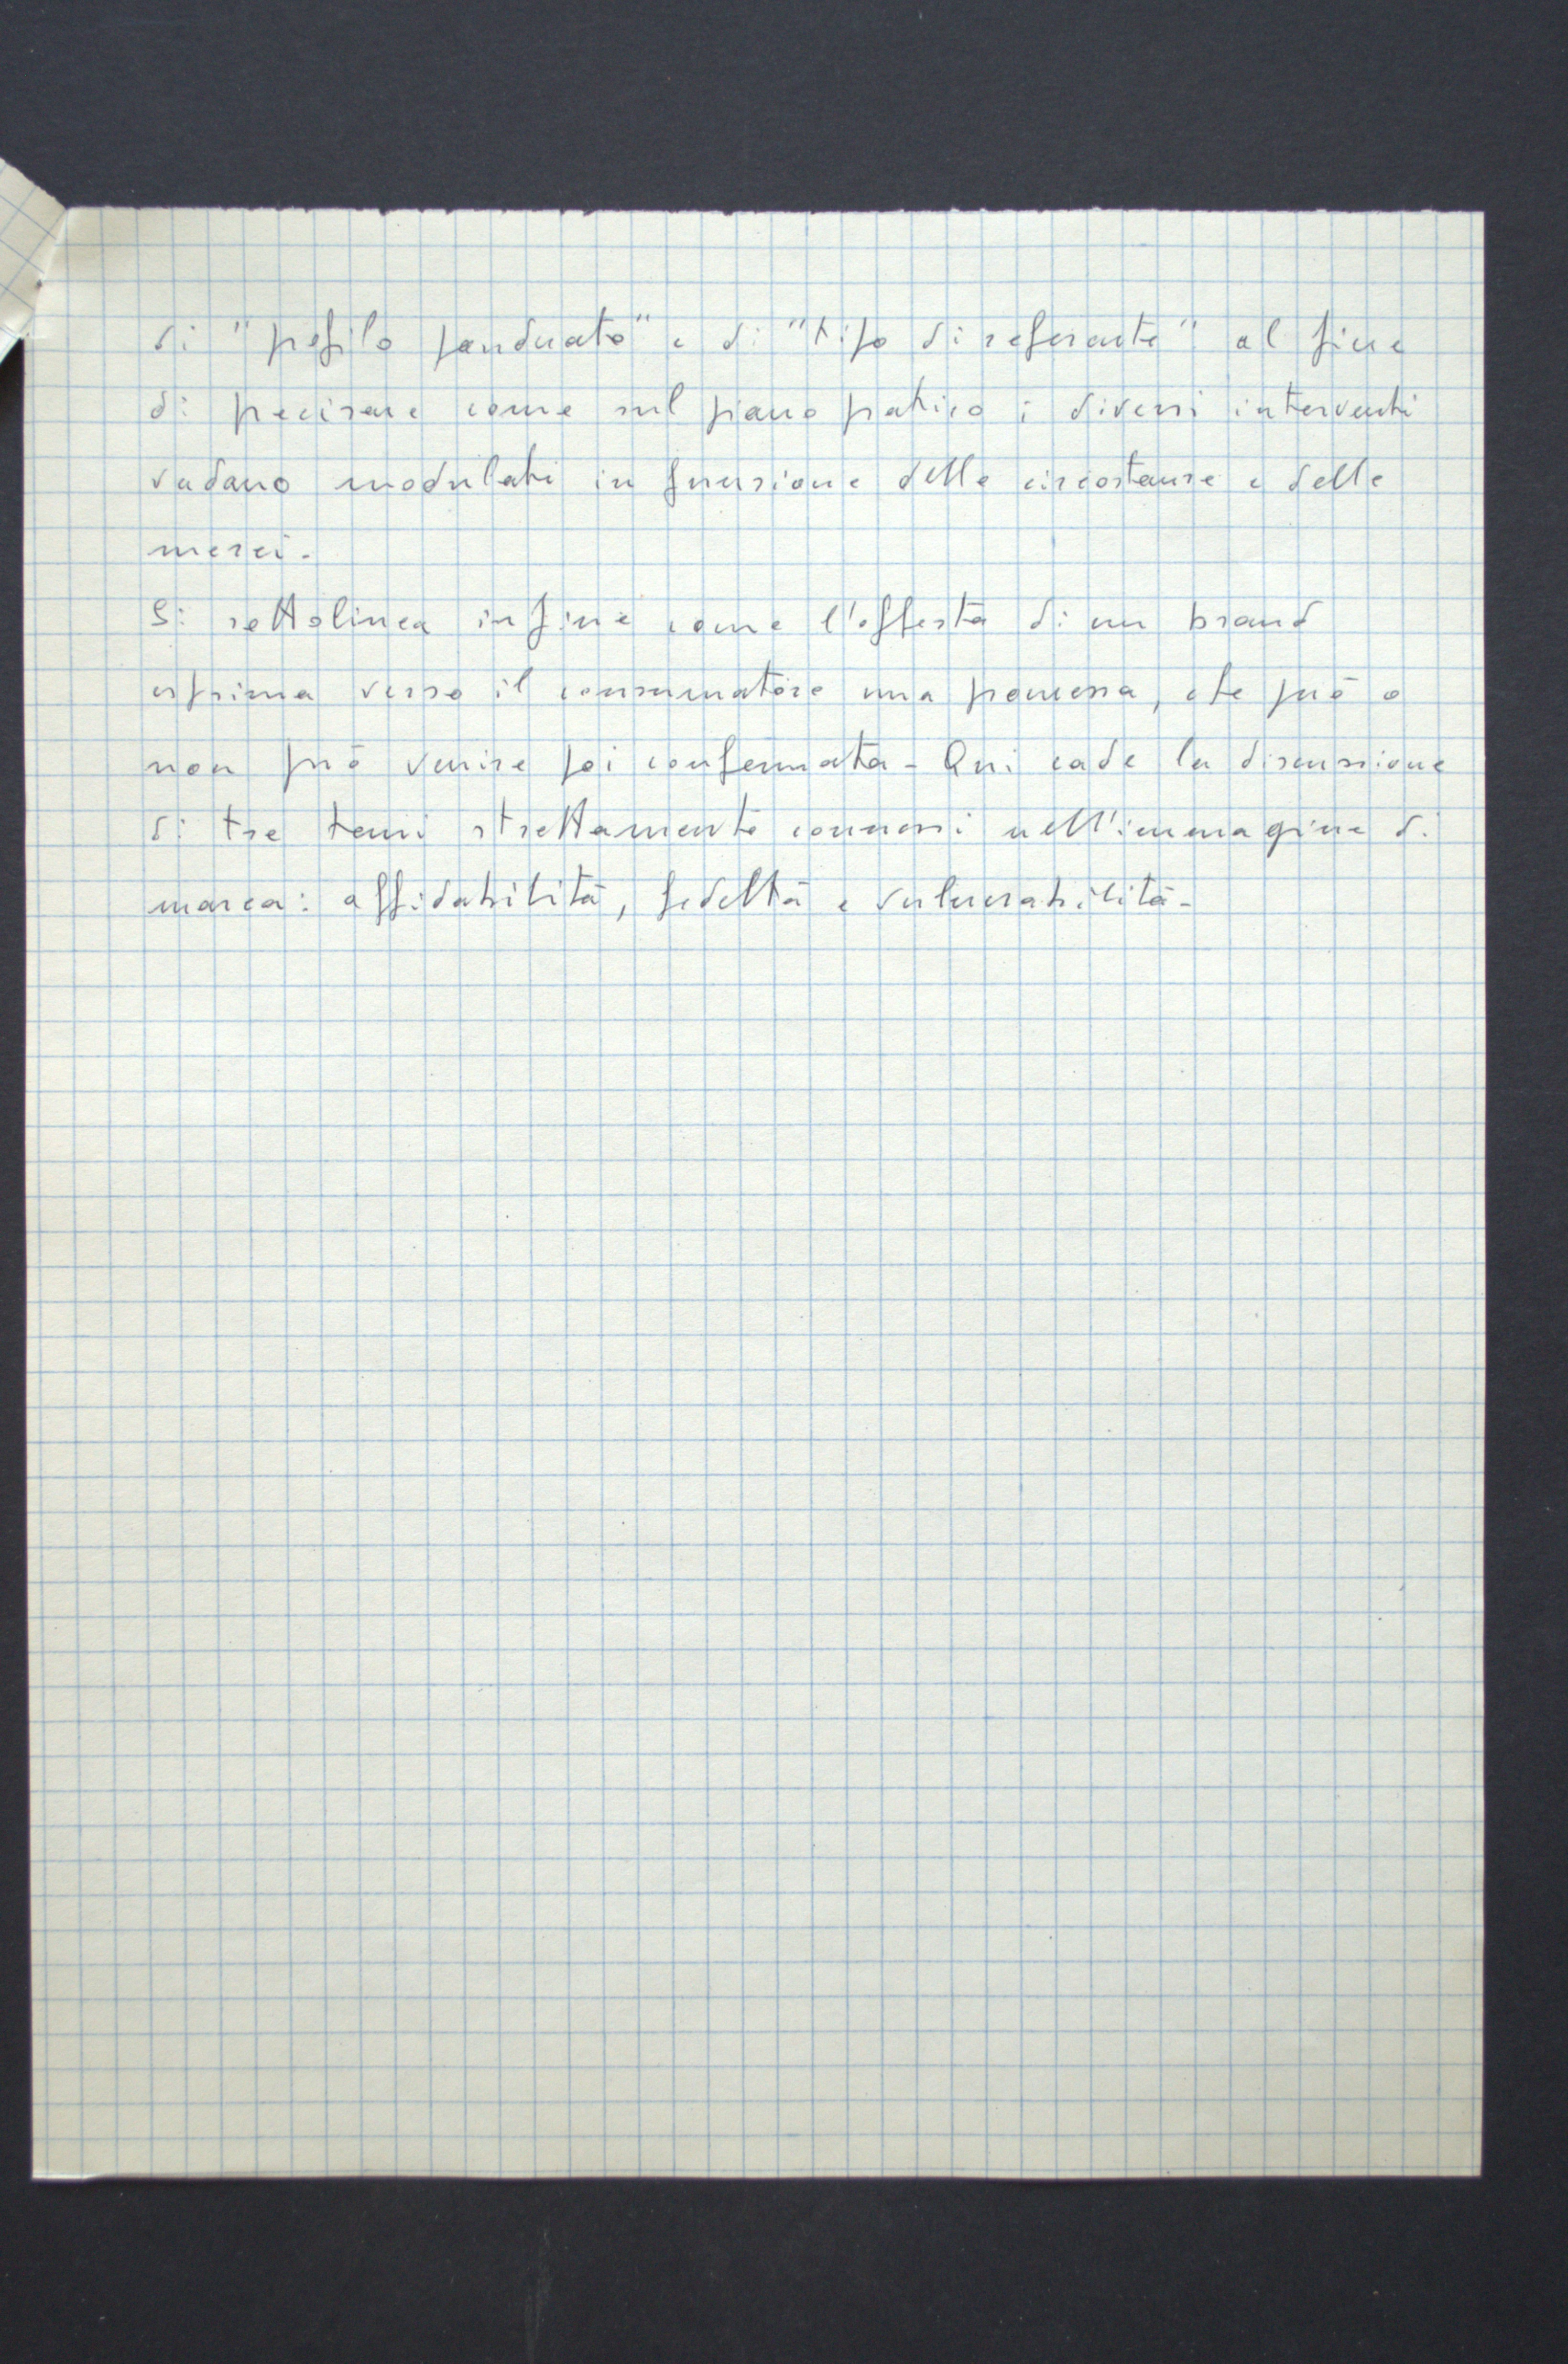 di "profilo ponderato" e di "tipo di referente" al fine
di precisare come sul piano pratico i diversi interventi
vadano modulati in funzione delle circostanze e delle
merci.
Si sottolinea infine come l'offerta di un brand
esprima verso il consumatore una promessa, che può o
non può venire poi confermata. Qui cade la discussione
di tre temi strettamente connessi nell'immagine di
marca: affidabilità, fedeltà e vulnerabilità.